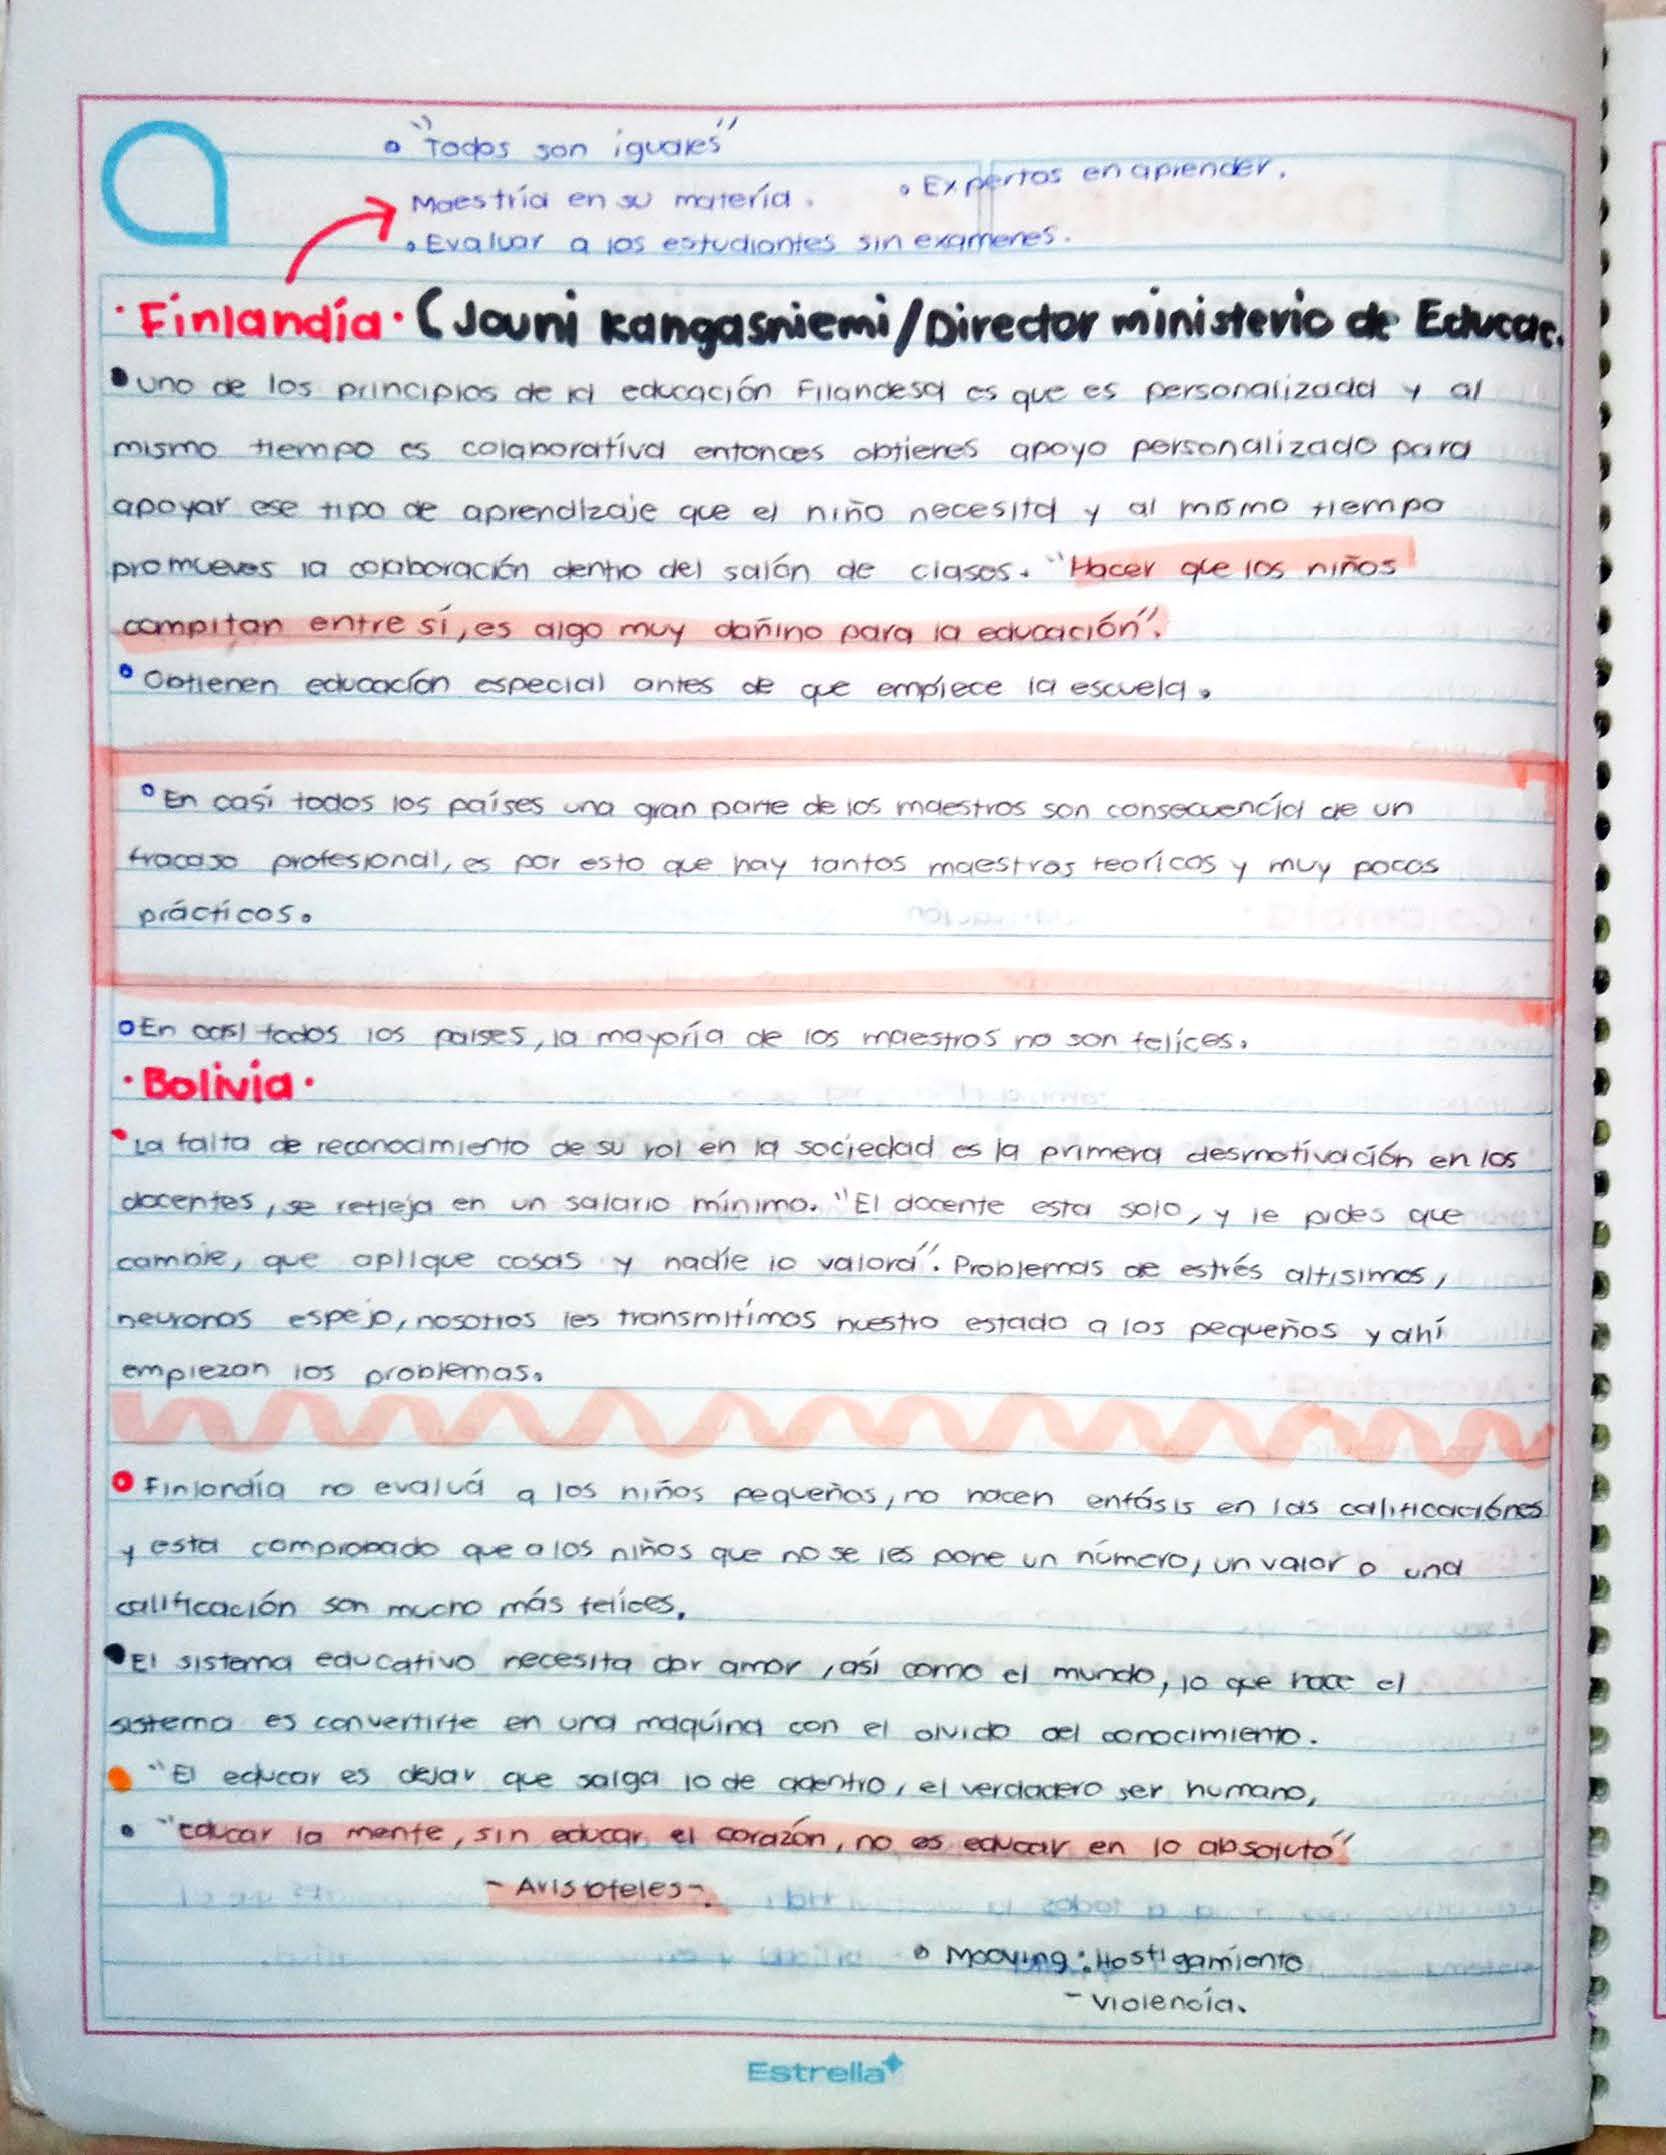 • "Todos son iguales"
Maestría en su matería.
• Expertos en aprender.
• Evaluar a los estudiantes sin examenes.
• Finlandía • (Jouni Kangasniemi/Director ministerio de Educac.
• uno de los principios de la educación Filandesa es que es personalizada y al
mismo tiempo es colaboratíva entonces obtienes apoyo personalizado para
apoyar ese tipo de aprendizaje que el niño necesita y al mismo tiempo
promueves la colaboración dentro del salón de clases. "Hacer que los niños
compitan entre sí, es algo muy dañino para la educación".
• Obtienen educacíon especial antes de que empíece la escuela.
• En casí todos los países una gran parte de los maestros son consecuencía de un
fracaso profesional, es por esto que hay tantos maestros teorícos y muy pocos
práctícos.
• En casi todos los países, la mayoría de los maestros no son felíces.
• Bolivia •
• La falta de reconocimiento de su rol en la sociedad es la primera desmotivación en los
docentes, se refleja en un salario mínimo. "El docente esta solo, y le pides que
cambie, que aplique cosas y nadíe lo valora". Problemas de estrés altisimos,
neuronas espejo, nosotros les transmitímos nuestro estado a los pequeños y ahí
empiezan los problemas.
• Finlandía no evaluá a los niños pequeños, no hacen enfásis en las calificaciónes
y esta comprobado que a los niños que no se les pone un número, un valor o una
calificación son mucho más felices.
• El sistema educativo necesita dar amor, así como el mundo, lo que hace el
sistema es convertirte en una maquína con el olvido del conocimiento.
• "El educar es dejar que salga lo de adentro, el verdadero ser humano,
• "Educar la mente, sin educar el corazón, no es educar en lo absoluto"
- Aristoteles -.
• Mooving: Hostigamíento
- Violencía.
Estrella